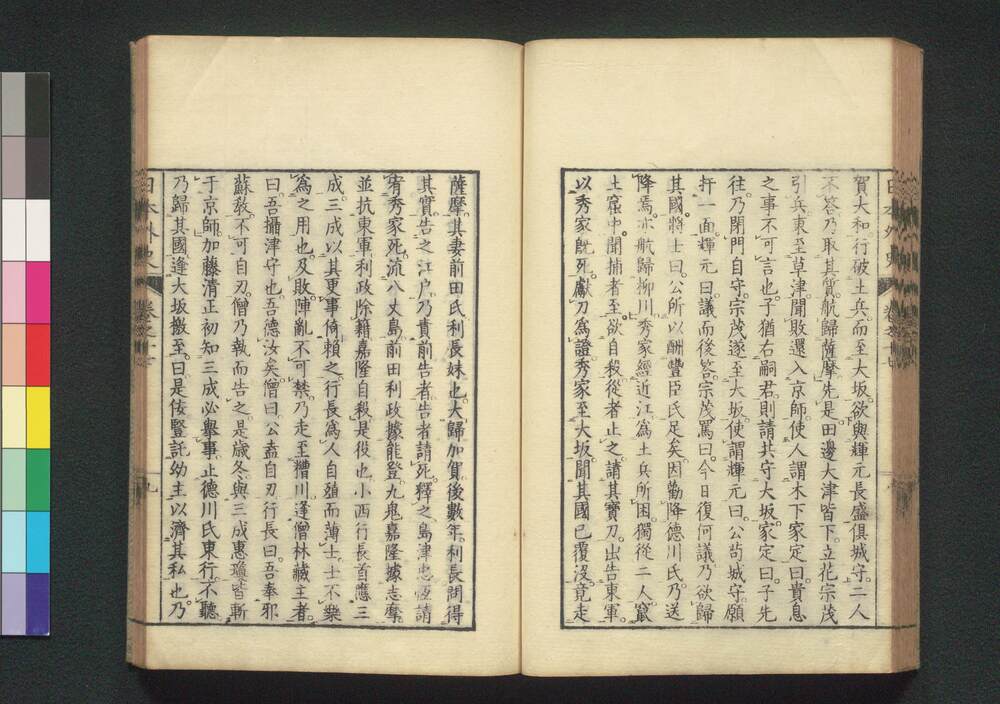 賀大和行破土兵而至大坂欲與輝元長盛俱城守二人
不答乃取其質航歸薩摩先是田邊大津皆下立花宗茂
引兵東至草津聞敗還入京師使人謂木下家定曰貴息
之事不可言也子猶右嗣君則請共守大坂家定曰子先
往乃閉門自守宗茂遂至大坂使謂輝元曰公苟城守願
扞一面輝元曰議而後答宗茂罵曰今日復何議乃欲歸
其國將士曰公所以酬豐臣氏足矣因勸降德川氏乃送
降焉亦航歸柳川秀家經近江為土兵所困獨從二人竄
土窟中聞捕者至欲自殺從者止之請其寶刀出告東軍
以秀家既死獻刀為證秀家至大坂聞其國已覆沒竟走
薩摩其妻前田氏利長妹也大歸加賀後數年利長詗得
其實告之江戶乃責前告者告者請死釋之島津忠恆請
宥秀家死流八丈島前田利政據能登九鬼嘉隆據志摩
並抗東軍利政除籍嘉隆自殺是役也小西行長首應三
成三成以其更事倚賴之行長為人自殖而薄士士不樂
為之用也及敗陣亂不可禁乃走至糟川逢僧林藏主者
曰吾攝津守也吾德汝矣僧曰公盍自刃行長曰吾奉邪
蘇教不可自刃僧乃執而告之是歲冬與三成惠瓊皆斬
于京師加藤清正初知三成必舉事止德川氏東行不聽
乃歸其國逢大坂檄至曰是佞豎託幼主以濟其私也乃
日本外史
卷之十七
九